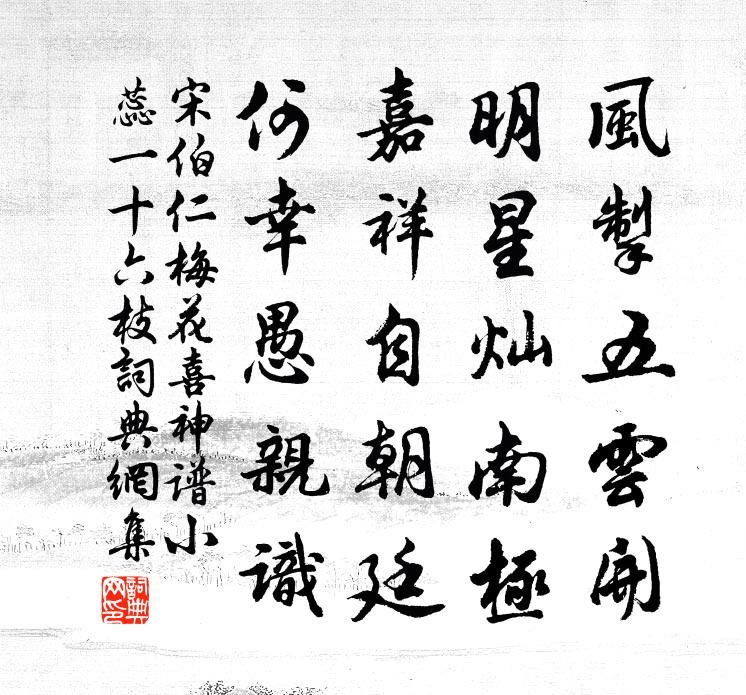 風掣五雲開
明星灿南極
嘉祥自朝廷
何幸愚親識
宋伯仁梅花喜神谱小
蕊一十六枝詞典網集
詞典網印